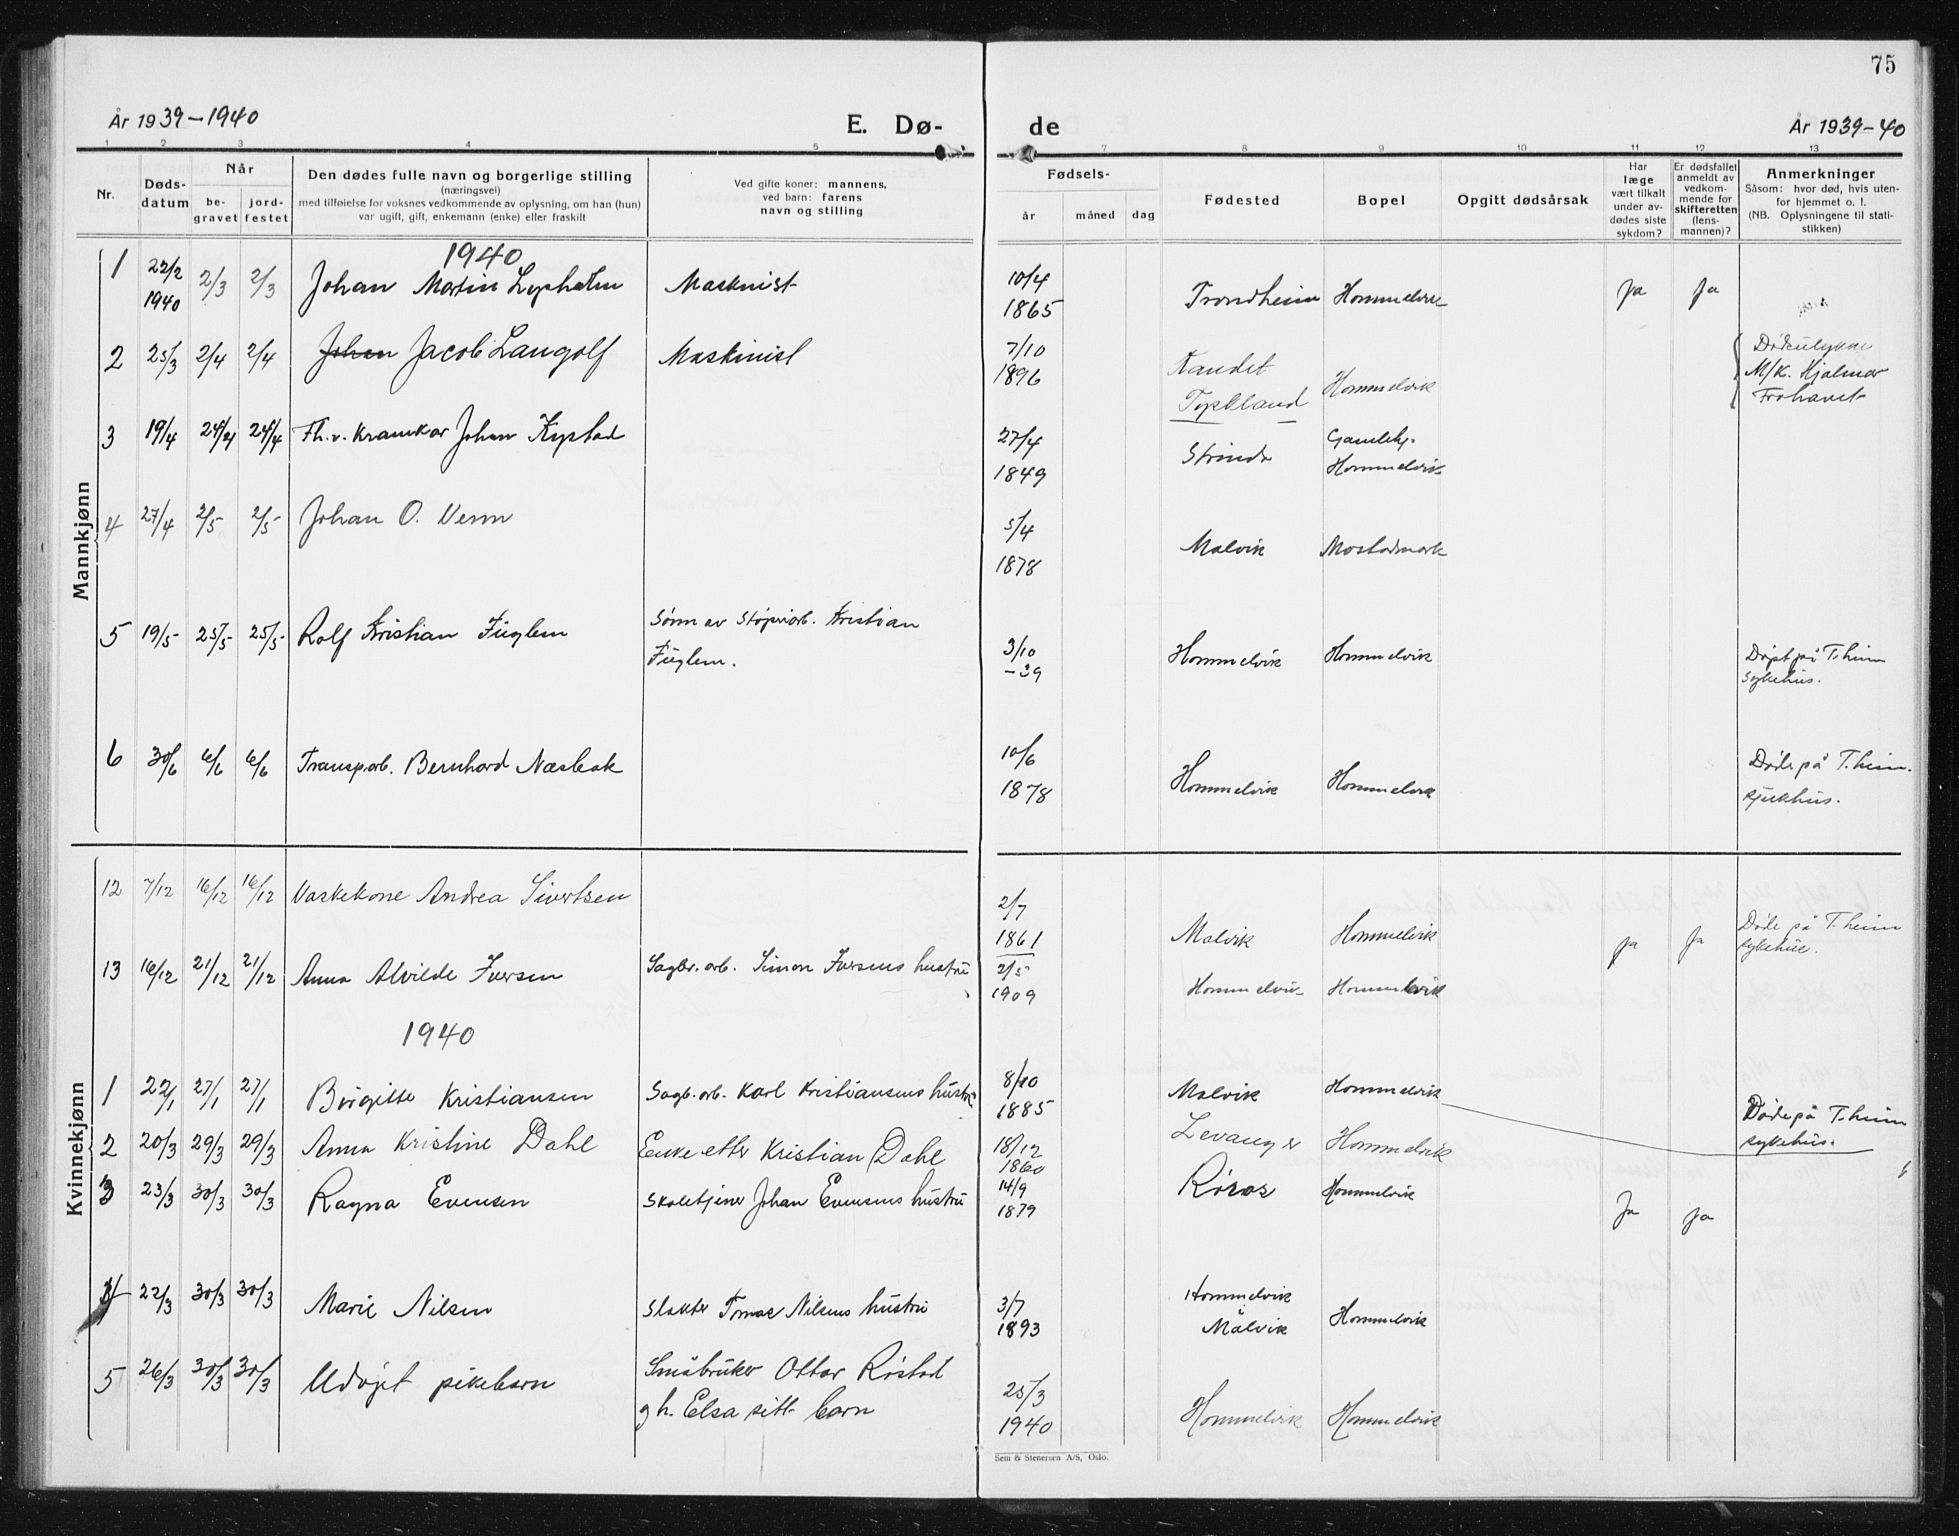 75
År 1939-1940
E. Dø-
de
År 1939-40
1 2 3 4 5 7 8 9 10 11 12 13
Nr.
Døds-
datum
Når
be-
gravet
jord-
festet
Den dødes fulle navn og borgerlige stilling
(næringsvei)
med tilføielse for voksnes vedkommende av oplysning, om han (hun)
var ugift, gift, enkemann (enke) eller fraskilt
Ved gifte koner: mannens,
ved barn: farens
navn og stilling
Fødsels-
år
måned
dag
Fødested
Bopel
Opgitt dødsårsak
Har
læge
vært tilkalt
under av-
dødes siste
sykdom?
Er dødsfallet
anmeldt av
vedkom-
mende for
skifteretten
(lens-
mannen)?
Anmerkninger
Såsom: hvor død, hvis uten-
for hjemmet o. l.
(NB. Oplysningene til stati-
stikken)
Mannkjønn
1940
1 22/2 1940 2/3 2/3 Johan Martin Maskinist 10/4 1865 Trondheim Hommelvik ja ja
2 25/3 2/4 2/4 Johan Jacob Langolf Maskinist 7/10 1896 Tyskland Hommelvik
M/k. Hjalmar
Frohavet
3 19/4 24/4 24/4 Fh.v. Johan Kystad 27/4 1849 Strinda Gamlehj. Hommelvik
4 27/4 2/5 2/5 Johan O. Venn 5/4 1878 Malvik Mostadmark
5 19/5 25/5 25/5 Rolf Kristian Fuglem Sønn av Støperiarb. Kristian
Fuglem. 3/10 -39 Hommelvik Hommelvik på T.heim
sykehus.
6 30/6 6/6 6/6 Transp.arb. Bernhard Næsbak 10/6 1878 Hommelvik Hommelvik Døde på T.heim.
sjukhus.
Kvinnekjønn
12 7/12 16/12 16/12 Vaskekone Andrea Sivertsen 2/7 1861 Malvik Hommelvik ja ja Døde på T.heim
sykehus.
13 16/12 21/12 21/12 Anna Alvilde Iversen Sagbr.arb. Simon Iversens hustru 2/5 1909 Hommelvik Hommelvik
1940
1 22/1 27/1 27/1 Birgitte Kristiansen Sagb.arb. Karl Kristiansens hustru 8/10 1885 Malvik Hommelvik Døde på T.heim
sykehus.
2 20/3 29/3 29/3 Anna Kristine Dahl Enke etter Kristian Dahl 18/12 1860 Levanger Hommelvik
3 23/3 30/3 30/3 Ragna Evensen Skoletjener Johan Evensens hustru 14/9 1879 Røros Hommelvik Ja ja
4 22/3 30/3 30/3 Marie Nilsen Slakter Tomas Nilsens hustru 3/7 1893 Hommelvik
i
Malvik Hommelvik
5 26/3 30/3 30/3 Udøpt pikebarn Småbruker Ottar Røstad
g h. Elsa sitt barn 25/3 1940 Hommelvik Hommelvik
Sem & Stenersen A/S, Oslo.